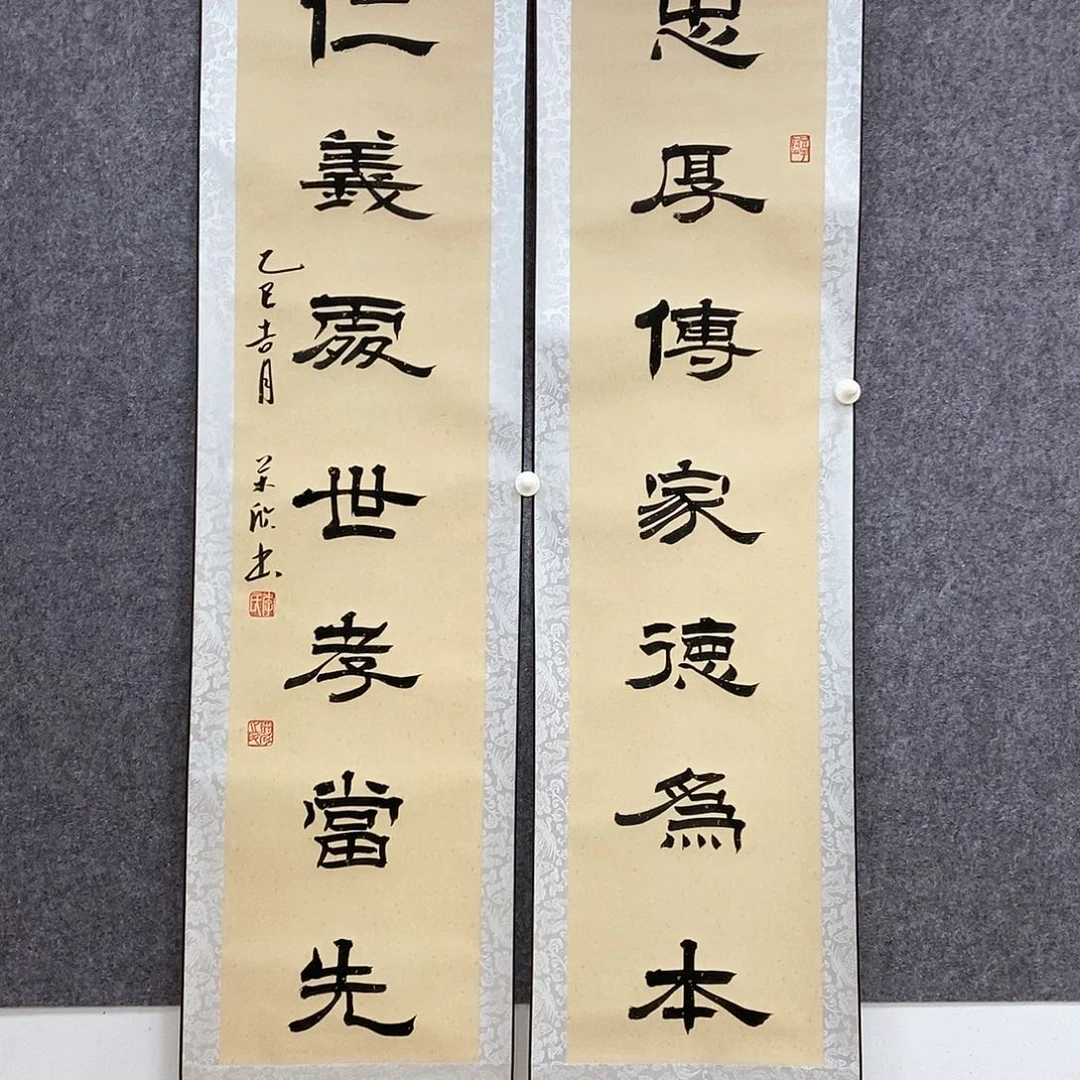 忠厚傳家德為本
仁義處世孝當先
乙巳吉月
榮欣书